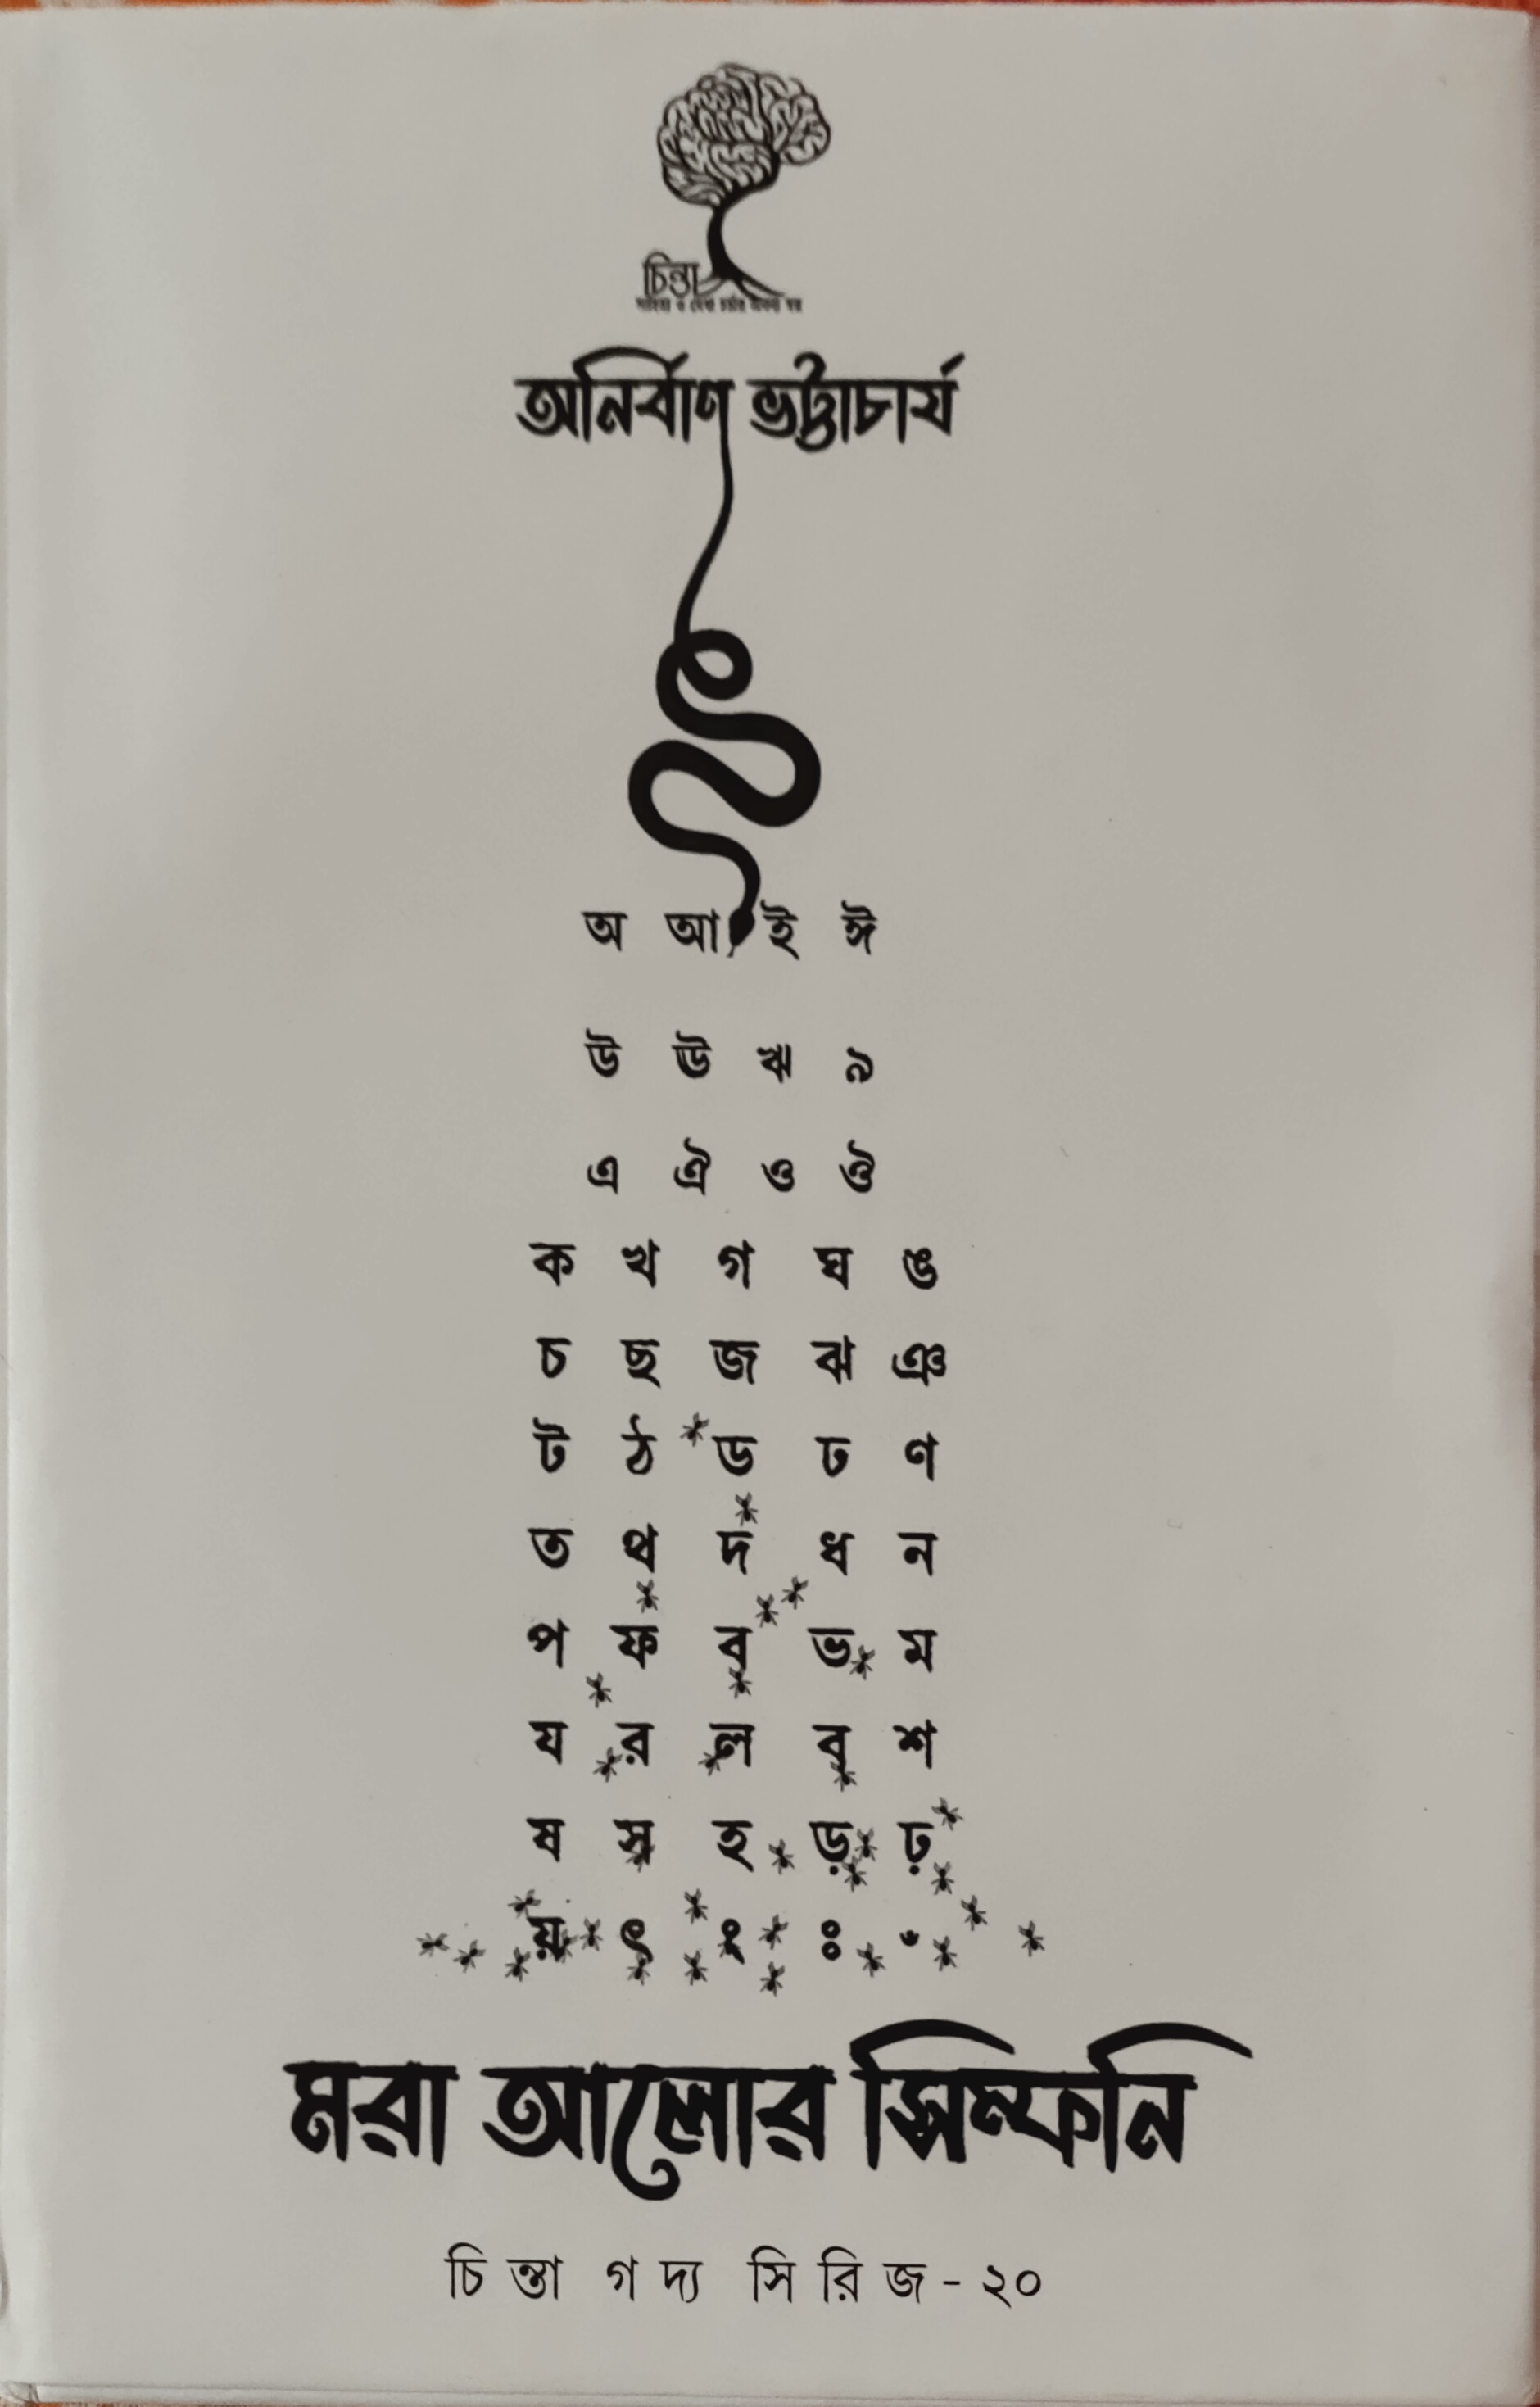 চিন্তা
অনির্বাণ ভট্টাচার্য
অ আ ই ঈ
উ ঊ ঋ ৯
এ ঐ ও ঔ
ক খ গ ঘ ঙ
চ ছ জ ঝ ঞ
ট ঠ ড ঢ ণ
ত থ দ ধ ন
প ফ ব ভ ম
য র ল ব শ
ষ স হ ড় ঢ়
য় ৎ ং ঃ ঁ
মরা আলোর সিম্ফনি
চিন্তা গদ্য সিরিজ - ২০